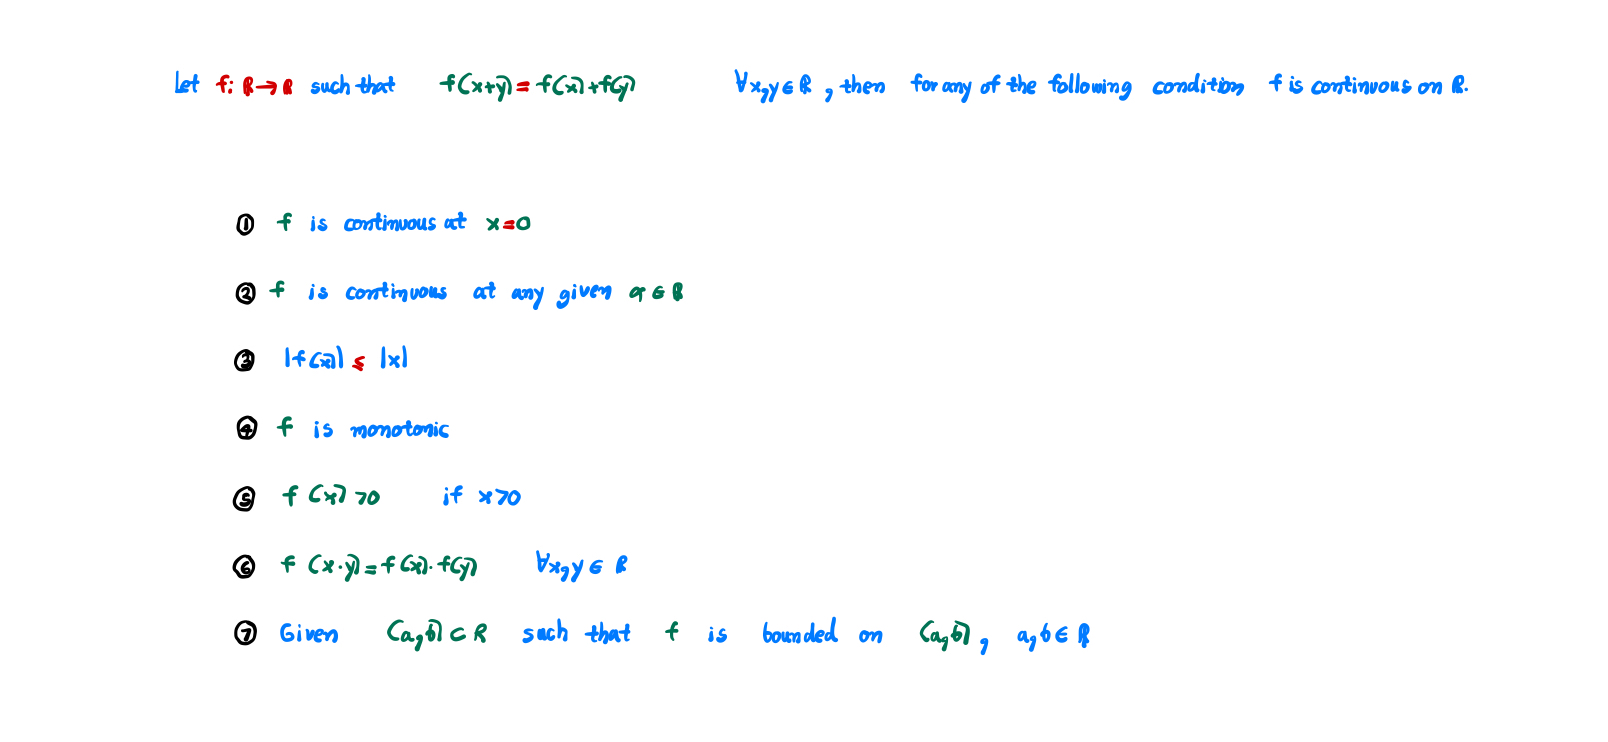 Let f: R→R such that f(x+y) = f(x)+f(y) ∀x,y ∈ R , then for any of the following condition f is continuous on R.
① f is continuous at x=0
② f is continuous at any given a ∈ R
③ |f(x)| ≤ |x|
④ f is monotonic
⑤ f(x) >0 if x>0
⑥ f(x·y) = f(x)·f(y) ∀x,y ∈ R
⑦ Given (a,b) ⊂ R such that f is bounded on (a,b) , a,b ∈ R